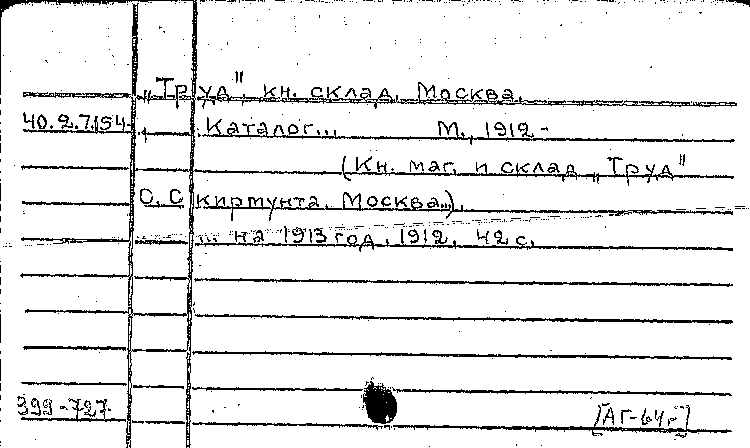 „Труд", кн. склад. Москва.
40.2.7.154
Каталог... М., 1912 -
(Кн. маг. и склад „Труд"
С. Скирмунта. Москва...).
... на 1913 год. 1912. 42 с.
399-727
[АГ-64г]